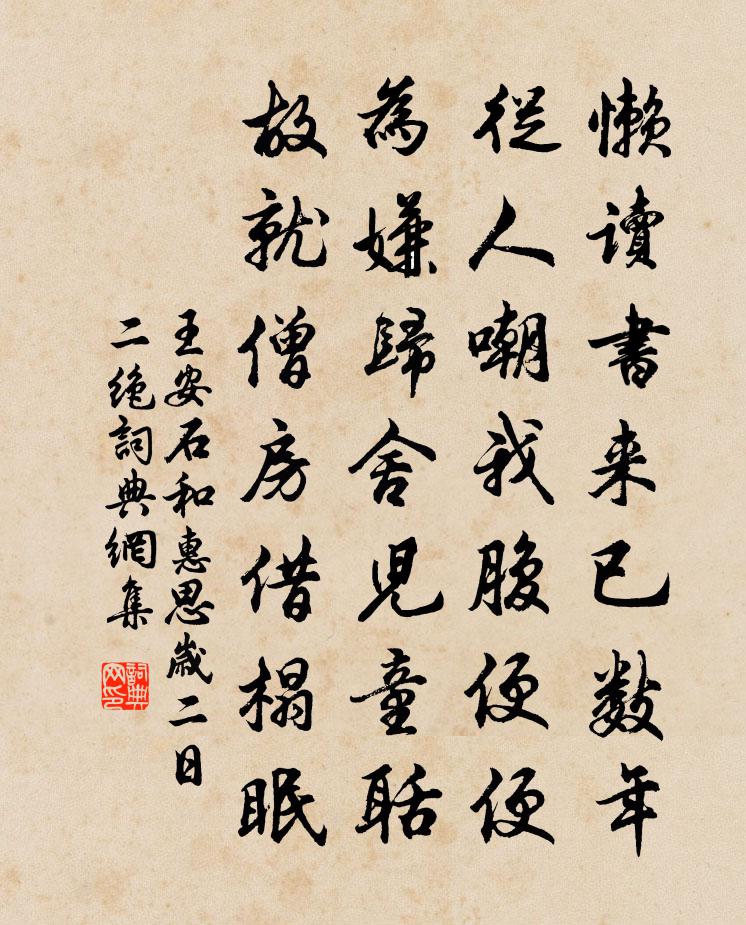 懶讀書来已數年
從人嘲我腹便便
為嫌歸舍兒童聒
故就僧房借榻眠
王安石和惠思歲二日
二绝詞典網集
詞典
网印